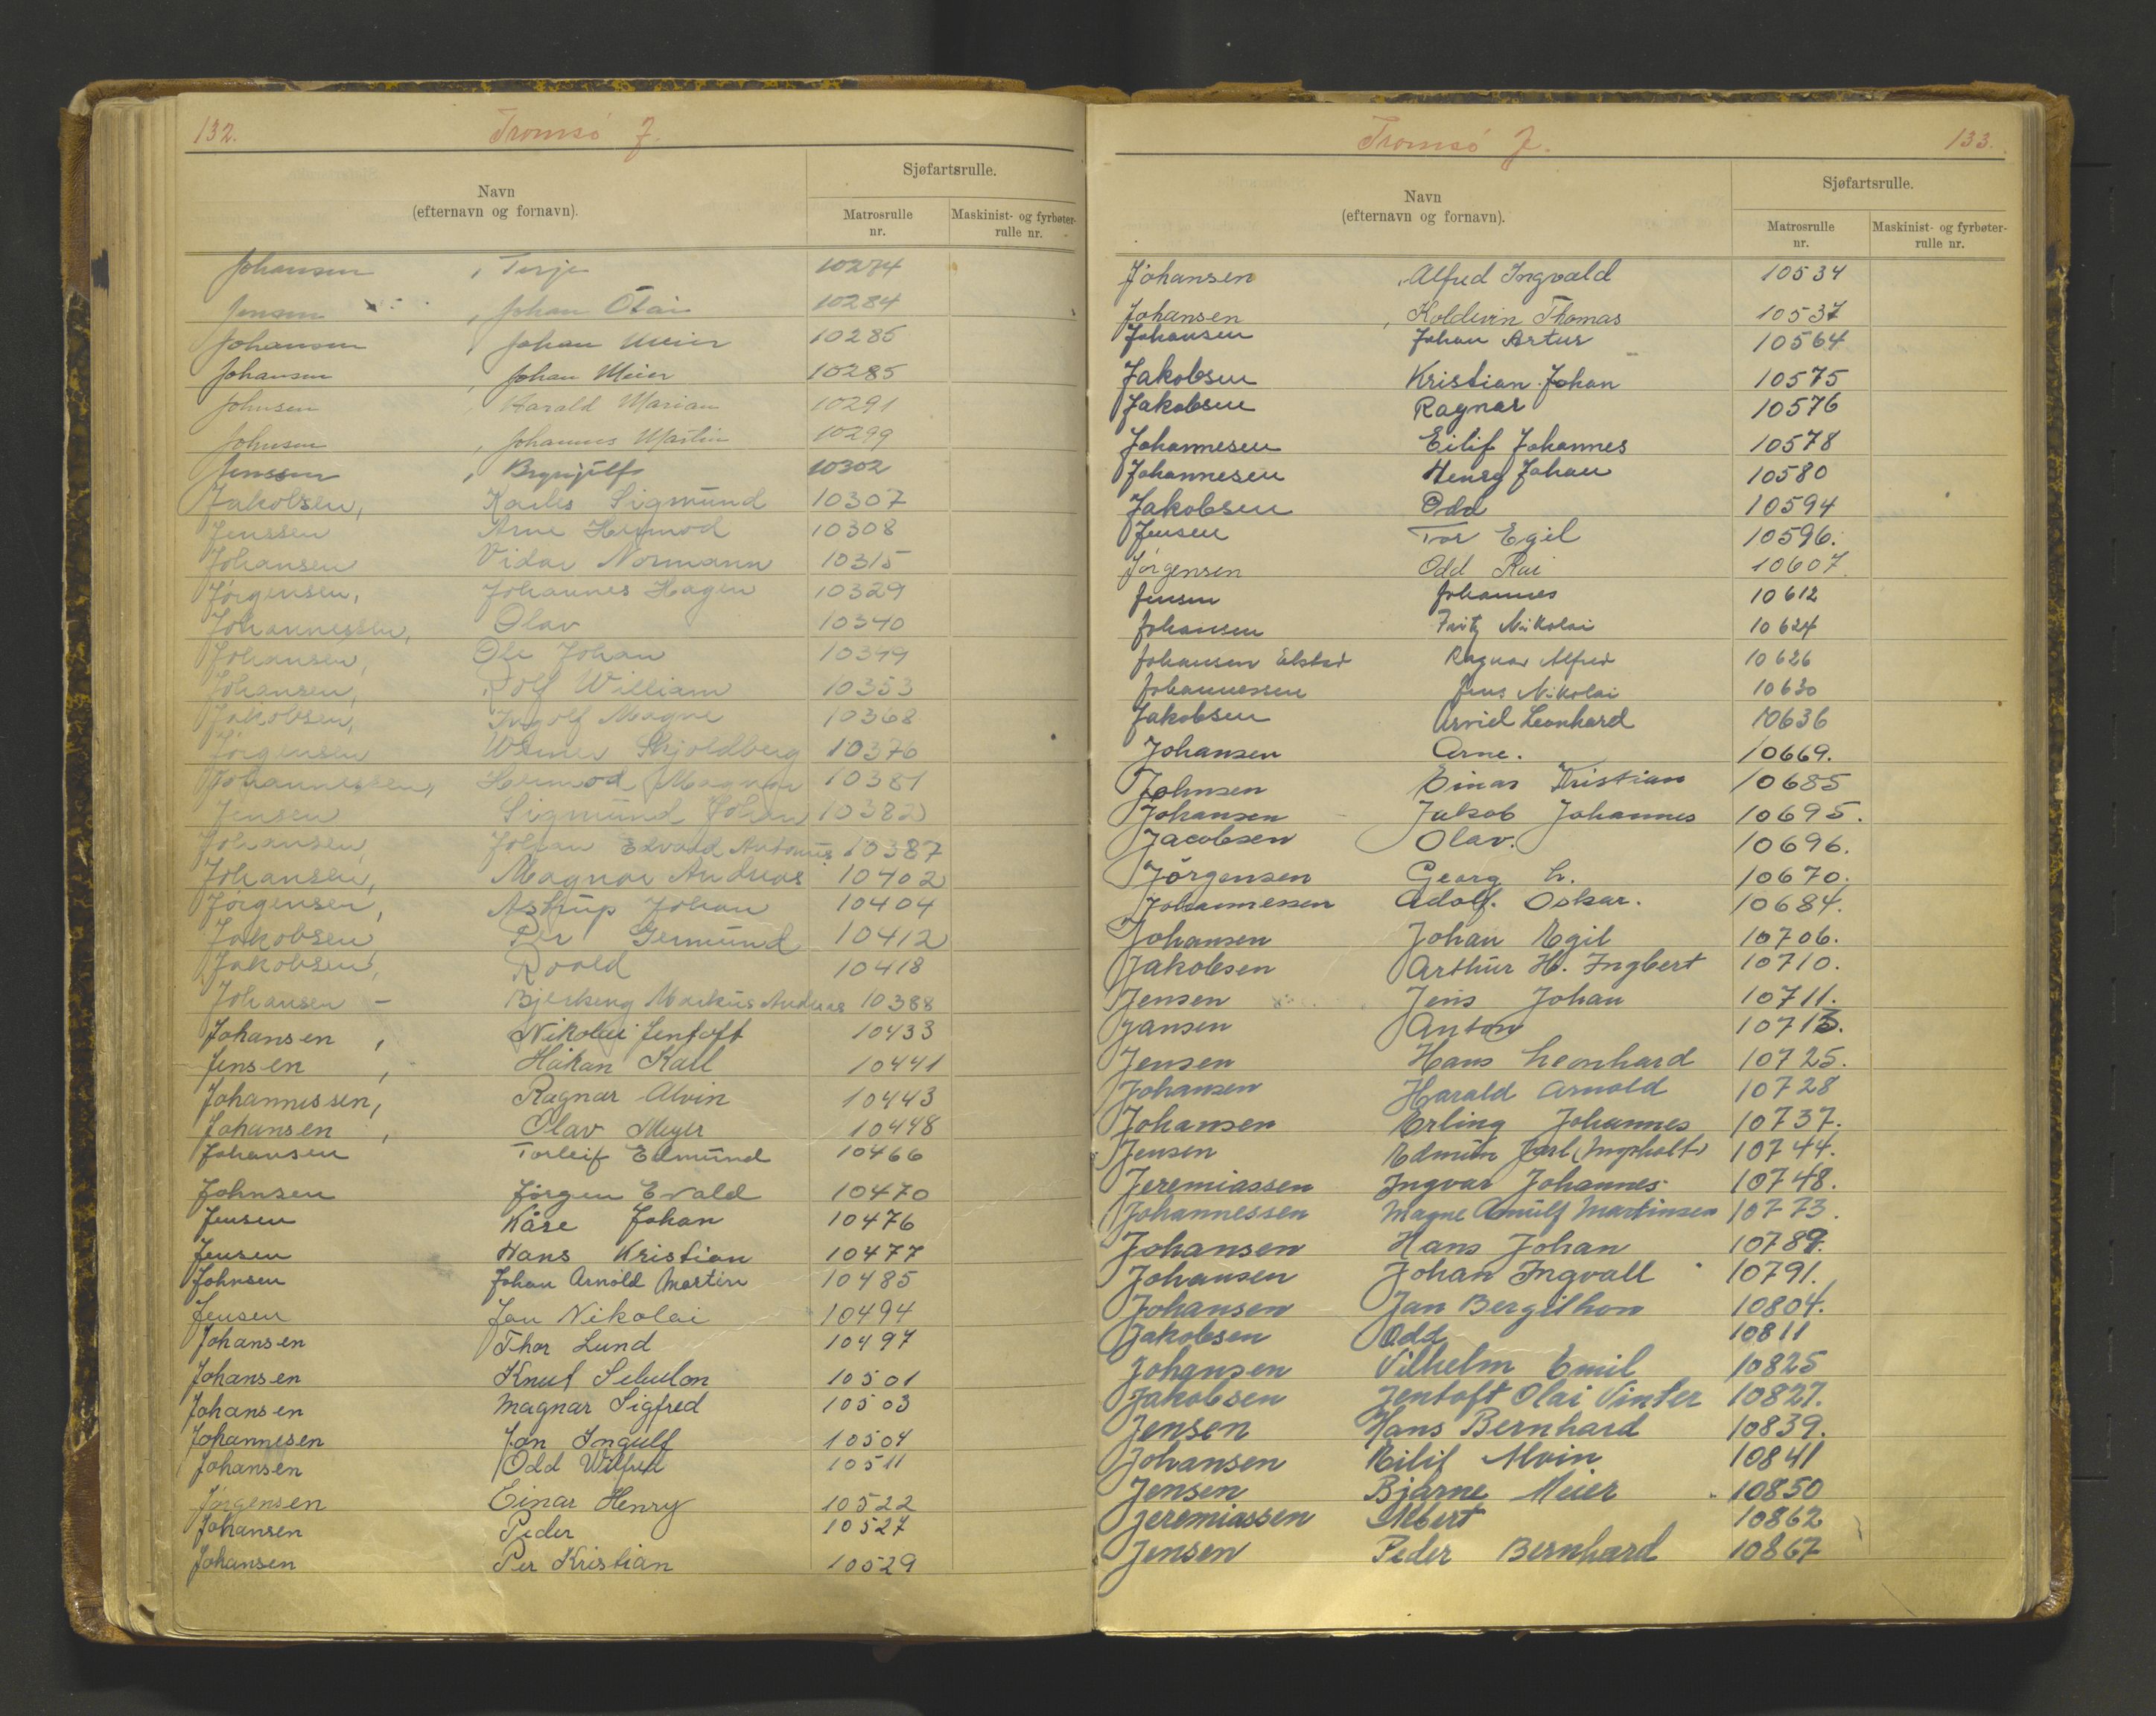 132. Tromsø J.
Navn
(efternavn og fornavn).
Sjøfartsrulle.
Matrosrulle nr.
Maskinist- og fyrbøter-rulle nr.
Johansen , Terje 10274
Jensen , Johan Olai 10284
Johansen , Johan Meier 10285
Johansen , Johan Meier 10285
Johnsen Harald Marian 10291
Johnsen , Johannes Martin 10299
Jenssen , Brynjulf 10302
Jakobsen, Karles Sigmund 10307
Jenssen Arne Hermod 10308
Johansen Vidar Normann 10315
Jørgensen, Johannes Hagen 10329
Johannessen, Olav 10340
Johansen, Ole Johan 10349
Johansen, Rolf William 10353
Jakobsen, Ingolf Magne 10368
Jørgensen Werner Skjoldberg 10376
Johannessen, Hermod Magnar 10381
Jensen Sigmund Johan 10382
Johansen, Johan Edvald Antonius 10387
Johansen, Magnar Andreas 10402
Jørgensen, Astrup Johan 10404
Jakobsen Per Germund 10412
Jakobsen, Roald 10418
Johansen - Bjerkeng Markus Andreas 10388
Johansen , Nikolai Jentoft 10433
Jensen , Håkan Karl 10441
Johannessen, Ragnar Alvin 10443
Johansen , Olav Meyer 10448
Johansen Torleif Edmund 10466
Johnsen Jørgen Evald 10470
Jensen Kåre Johan 10476
Jensen Hans Kristian 10477
Johnsen Johan Arnold Martin 10485
Jensen Jan Nikolai 10494
Johansen Thor Lund 10497
Johansen Knut Sebulon 10501
Johansen Magnar Sigfred 10503
Johannesen Jon Ingulf 10504
Johansen Odd Wilfred 10511
Jørgensen Einar Henry 10522
Johansen Peder 10527
Johansen Per Kristian 10529
Tromsø J. 133.
Navn
(efternavn og fornavn).
Sjøfartsrulle.
Matrosrulle nr.
Maskinist- og fyrbøter-rulle nr.
Johansen , Alfred Ingvald 10534
Johansen , Koldevin Thomas 10537
Johansen Johan Artur 10564
Jakobsen Kristian Johan 10575
Jakobsen Ragnar 10576
Johannesen Eilif Johannes 10578
Johannesen Henry Johan 10580
Jakobsen Odd 10594
Jensen Tor Egil 10596.
Jørgensen Odd Kai 10607.
Jensen Johannes 10612
Johansen Fritz Nikolai 10624
Johansen Elstad Ragnar Alfred 10626
Johannessen Jens Nikolai 10630
Jakobsen Arvid Leonhard 10636
Johansen Arne. 10669.
Johnsen Einar Kristian 10685
Johansen Jakob Johannes 10695.
Jacobsen Olav. 10696.
Jørgensen Georg L. 10670.
Johannessen Adolf. Oskar. 10684.
Johansen Johan Egil 10706.
Jakobsen Arthur H. Ingbert 10710.
Jensen Jens Johan 10711.
Jansen Anton 10713.
Jensen Hans Leonhard 10725.
Johansen Harald Arnold 10728
Johansen Erling Johannes 10737.
Jensen Edmun Jarl 10744.
Jeremiassen Ingvar Johannes 10748.
Johannessen Magne Arnulf Martinsen 10773.
Johansen Hans Johan 10789.
Johansen Johan Ingvall 10791.
Johansen Jan Bergithon 10804.
Jakobsen Odd 10811
Johansen Vilhelm Emil 10825
Jakobsen Jentoft Olai Vinter 10827.
Jensen Hans Bernhard 10839.
Johansen Eilif Alvin 10841
Jensen Bjarne Meier 10850
Jeremiassen Albert 10862
Jensen Peder Bernhard 10867